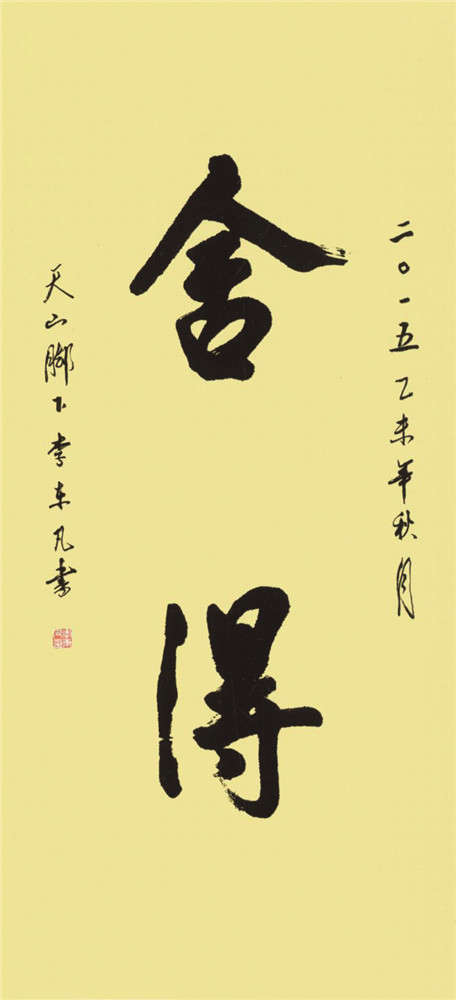 二〇一五乙未年秋月
舍得
天山脚下李东凡书